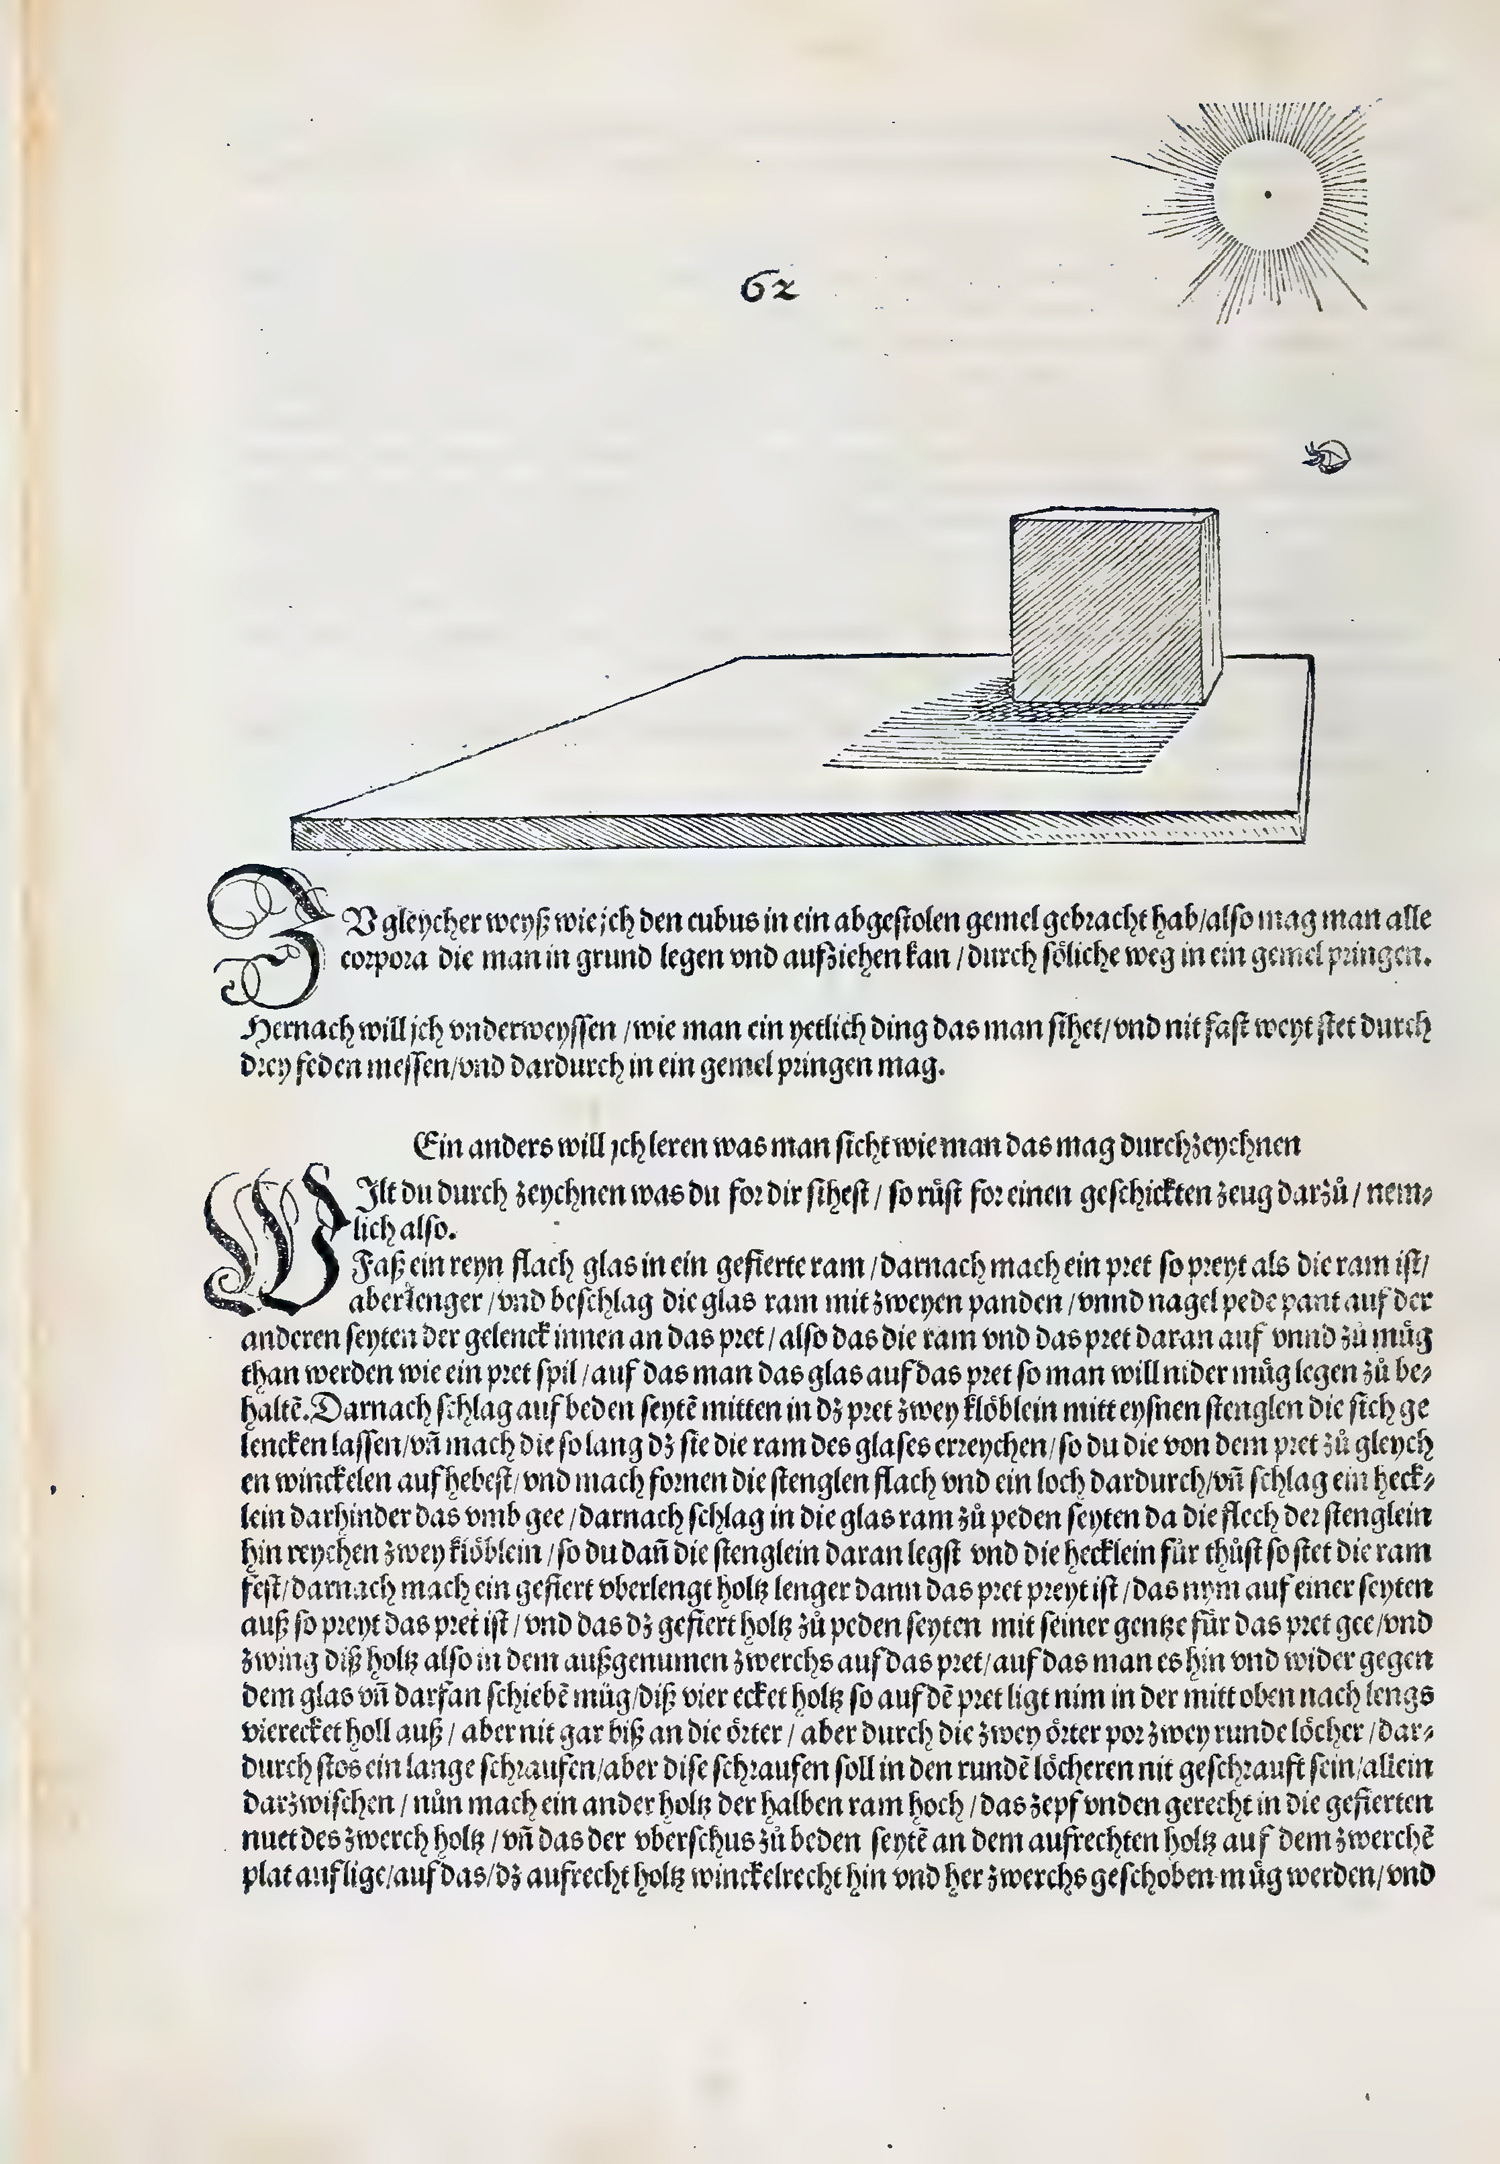 62
ZV gleycher weyß wie jch den cubus in ein abgestolen gemel gebracht hab/also mag man alle
corpora die man in grund legen vnd aufziehen kan/durch söliche weg in ein gemel pringen.
Hernach will jch vnderweyssen/wie man ein yetlich ding das man sihet/vnd nit fast weyt stet durch
drey feden messen/vnd dardurch in ein gemel pringen mag.
Ein anders will jch leren was man sicht wie man das mag durchzeychnen
WIlt du durch zeychnen was du for dir sihest/so rüst for einen geschickten zeug darzů/nem-
lich also.
Faß ein reyn flach glas in ein gefierte ram/darnach mach ein pret so preyt als die ram ist/
aber lenger/vnd beschlag die glas ram mit zweyen panden/vnnd nagel pede pant auf der
anderen seyten der gelenck innen an das pret/also das die ram vnd das pret daran auf vnnd zů můg
than werden wie ein pret spil/auf das man das glas auf das pret so man will nider můg legen zů be-
haltē. Darnach schlag auf beden seytē mitten in dz pret zwey klöblein mitt eysnen stenglen die sich ge
lencken lassen/vñ mach die so lang dz sie die ram des glases erreychen/so du die von dem pret zů gleych
en winckelen auf hebest/vnd mach fornen die stenglen flach vnd ein loch dardurch/vñ schlag ein heck-
lein darhinder das vmb gee/darnach schlag in die glas ram zů peden seyten da die flech der stenglein
hin reychen zwey klöblein/so du dañ die stenglein daran legst vnd die hecklein für thůst so stet die ram
fest/darnach mach ein gefiert vberlengt holtz lenger dann das pret preyt ist/das nym auf einer seyten
auß so preyt das pret ist/vnd das dz gefiert holtz zů peden seyten mit seiner gentze für das pret gee/vnd
zwing diß holtz also in dem außgenumen zwerchs auf das pret/auf das man es hin vnd wider gegen
dem glas vñ darfan schiebē můg/diß vier ecket holtz so auf dē pret ligt nim in der mitt oben nach lengs
vierecket holl auß/aber nit gar biß an die örter/aber durch die zwey örter por zwey runde löcher/dar-
durch stos ein lange schraufen/aber dise schraufen soll in den rundē löcheren nit geschrauft sein/allein
darzwischen/nůn mach ein ander holtz der halben ram hoch/das zepf vnden gerecht in die gefierten
nuet des zwerch holtz/vñ das der vberschus zů beden seytē an dem aufrechten holtz auf dem zwerchē
plat auf lige/auf das/dz aufrecht holtz winckelrecht hin vnd her zwerchs geschoben můg werden/vnd